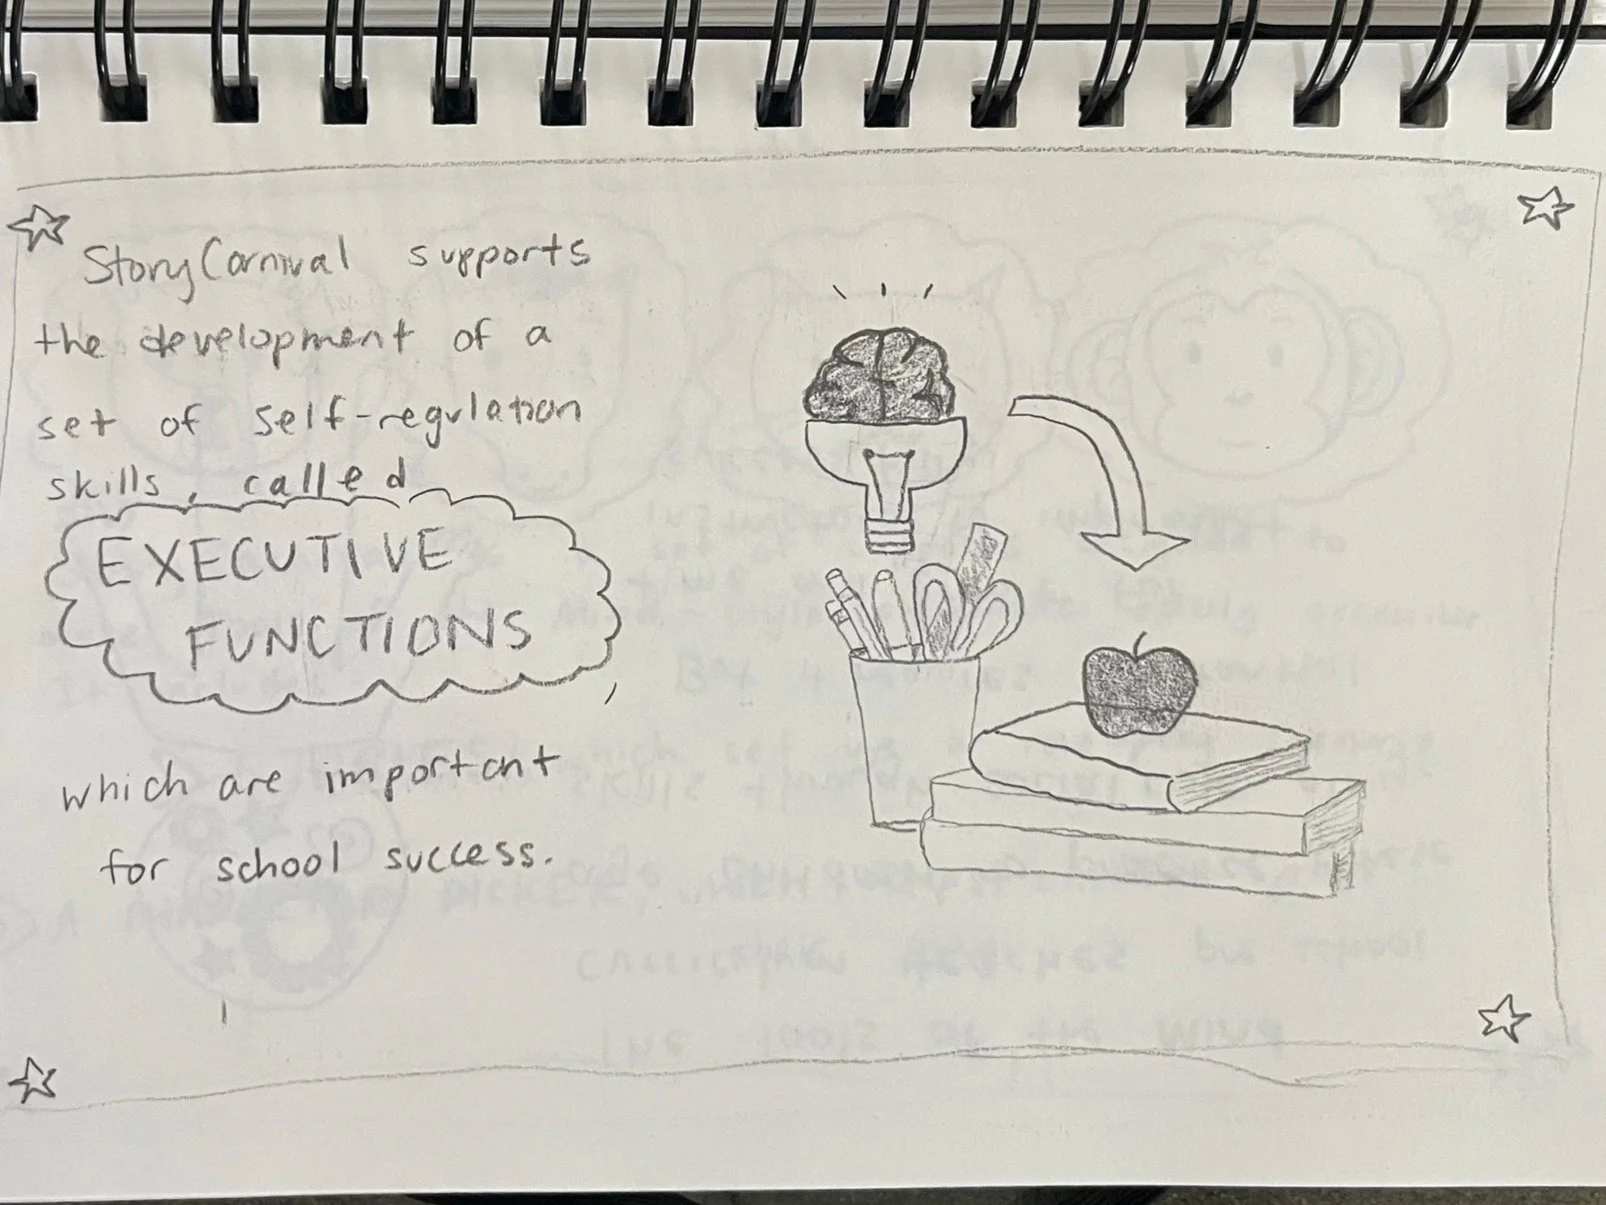 StoryCarnival supports
the development of a
set of self-regulation
skills, called
EXECUTIVE
FUNCTIONS,
which are important
for school success.